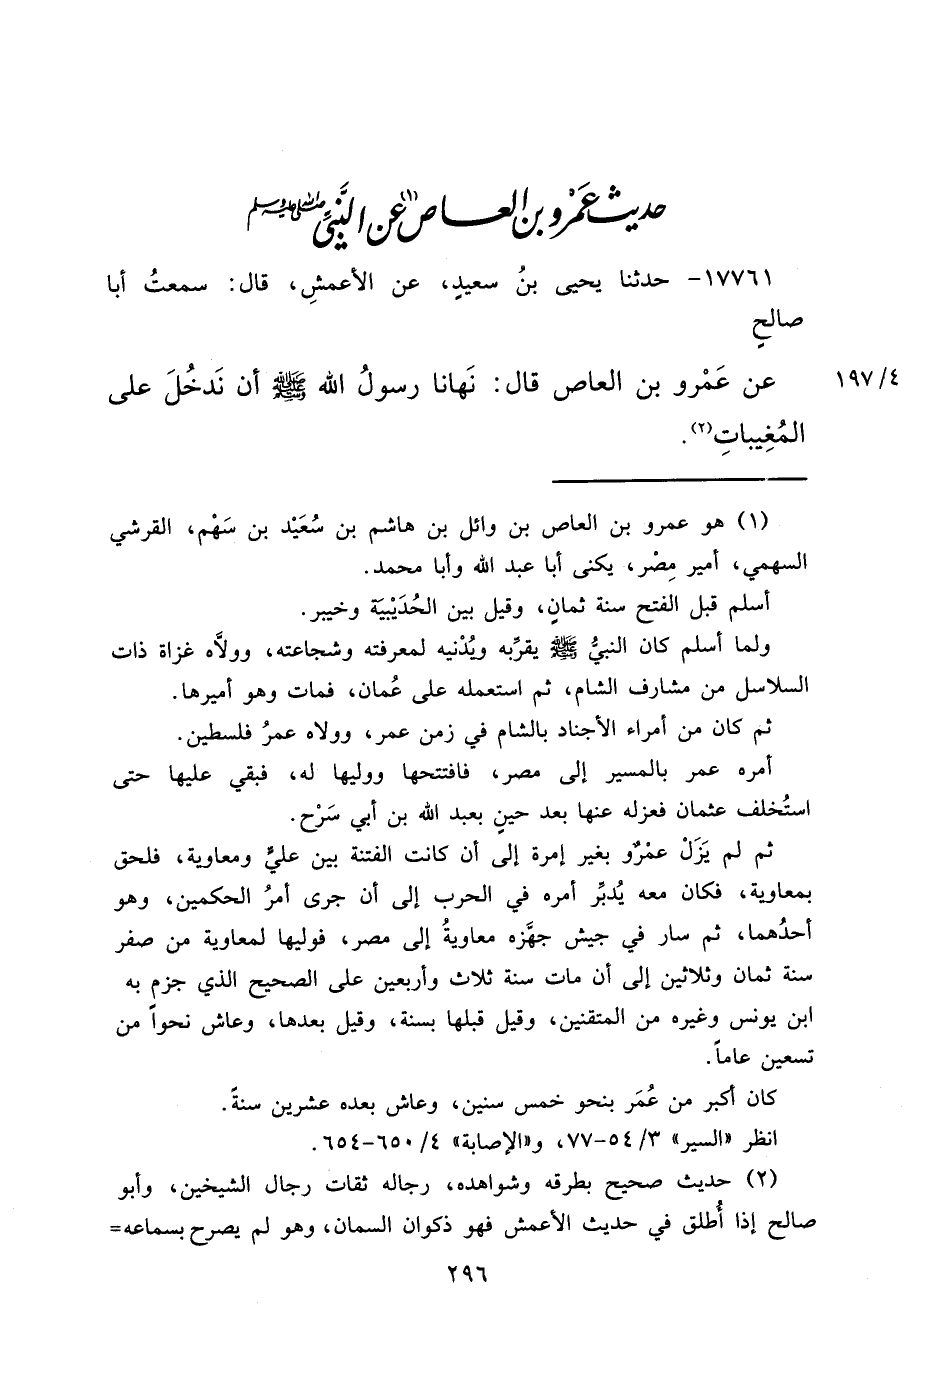 حديث عَمْرو بن العاص(١) عن النَّبيِّ صلى الله عليه وسلم
١٧٧٦١- حدثنا يحيى بنُ سعيدٍ، عن الأعمشِ، قال: سمعتُ أبا
صالحٍ
عن عَمْرو بن العاص قال: نَهانا رسولُ الله ﷺ أن نَدخُلَ على
٤/ ١٩٧
المُغِيباتِ(٢).
(١) هو عمرو بن العاص بن وائل بن هاشم بن سُعَيْد بن سَهْم، القرشي
السهمي، أمير مِصْر، يكنى أبا عبد الله وأبا محمد.
أسلم قبل الفتح سنة ثمانٍ، وقيل بين الحُدَيْبيَة وخيبر.
ولما أسلم كان النبيُّ ﷺ يقرِّبه ويُدْنيه لمعرفته وشجاعته، وولاَّه غزاة ذات
السلاسل من مشارف الشام، ثم استعمله على عُمان، فمات وهو أميرها.
ثم كان من أمراء الأجناد بالشام في زمن عمر، وولاه عمرُ فلسطين.
أمره عمر بالمسير إلى مصر، فافتتحها ووليها له، فبقي عليها حتى
استُخلف عثمان فعزله عنها بعد حينٍ بعبد الله بن أبي سَرْح.
ثم لم يَزَلْ عمْرٌو بغير إمرة إلى أن كانت الفتنة بين عليٍّ ومعاوية، فلحق
بمعاوية، فكان معه يُدبِّر أمره في الحرب إلى أن جرى أمرُ الحكمين، وهو
أحدُهما، ثم سار في جيش جهَّزه معاويةُ إلى مصر، فوليها لمعاوية من صفر
سنة ثمان وثلاثين إلى أن مات سنة ثلاث وأربعين على الصحيح الذي جزم به
ابن يونس وغيره من المتقنين، وقيل قبلها بسنة، وقيل بعدها، وعاش نحواً من
تسعين عاماً.
كان أكبر من عُمَر بنحو خمس سنين، وعاش بعده عشرين سنةً.
انظر «السير» ٣/ ٥٤-٧٧، و«الإصابة» ٤/ ٦٥٠-٦٥٤.
(٢) حديث صحيح بطرقه وشواهده، رجاله ثقات رجال الشيخين، وأبو
صالح إذا أُطلق في حديث الأعمش فهو ذكوان السمان، وهو لم يصرح بسماعه=
٢٩٦